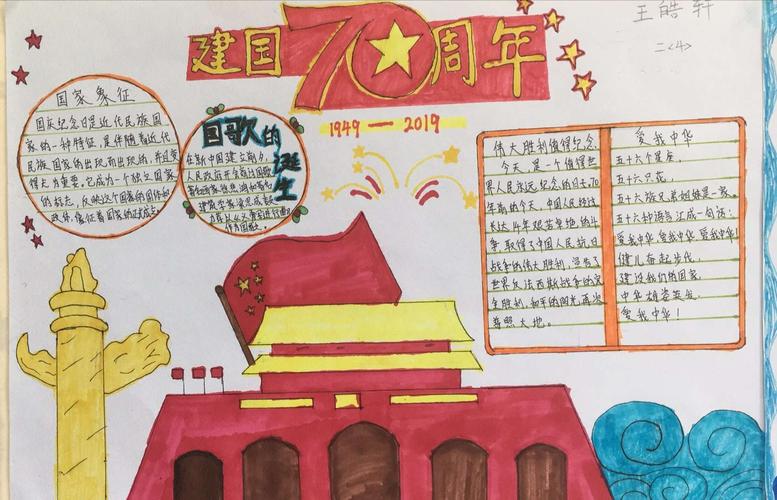 建国70周年
王皓轩
二<4>
1949—2019
国家象征
国庆纪念日是近代民族国
家的一种特征,是伴随着近代
民族国家的出现而出现的,并且变
得尤为重要。它成为一个独立国家
的标志,反映这个国家的国体和
政体,象征着国家的
国歌的诞生
在新中国建立前夕,
人民政府
伟大胜利值得纪念
今天,是一个值得世
界人民永远纪念的日子,70
年前的今天,中国人民经过
长达14年艰苦卓绝的斗
争,取得了中国人民抗日
战争的伟大胜利,宣告了
世界反法西斯战争的完
全胜利,和平的阳光再次
普照大地。
爱我中华
五十六个星座,
五十六只花,
五十六族兄弟姐妹是一家,
五十六种语言汇成一句话:
爱我中华爱我中华爱我中华!
健儿奋起步伐,
建设我们的国家,
中华雄姿英发,
爱我中华!